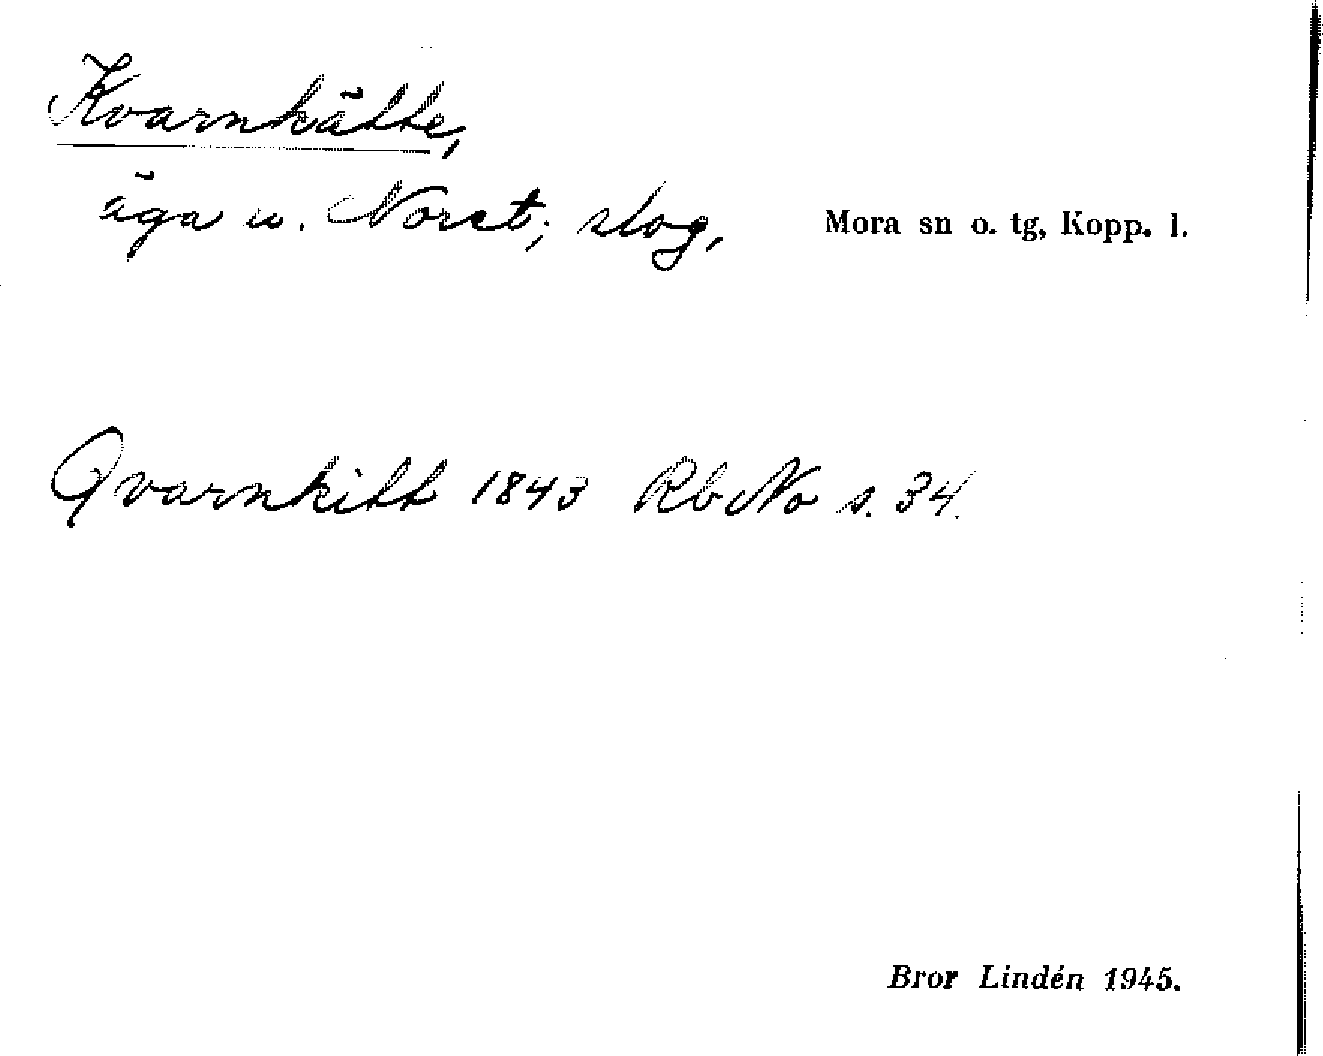 Kvarnkätte,
äga u. Noret; skog, Mora sn o. tg, Kopp. l.
Qvarnkitt 1843 RbNo s. 34.
Bror Lindén 1945.